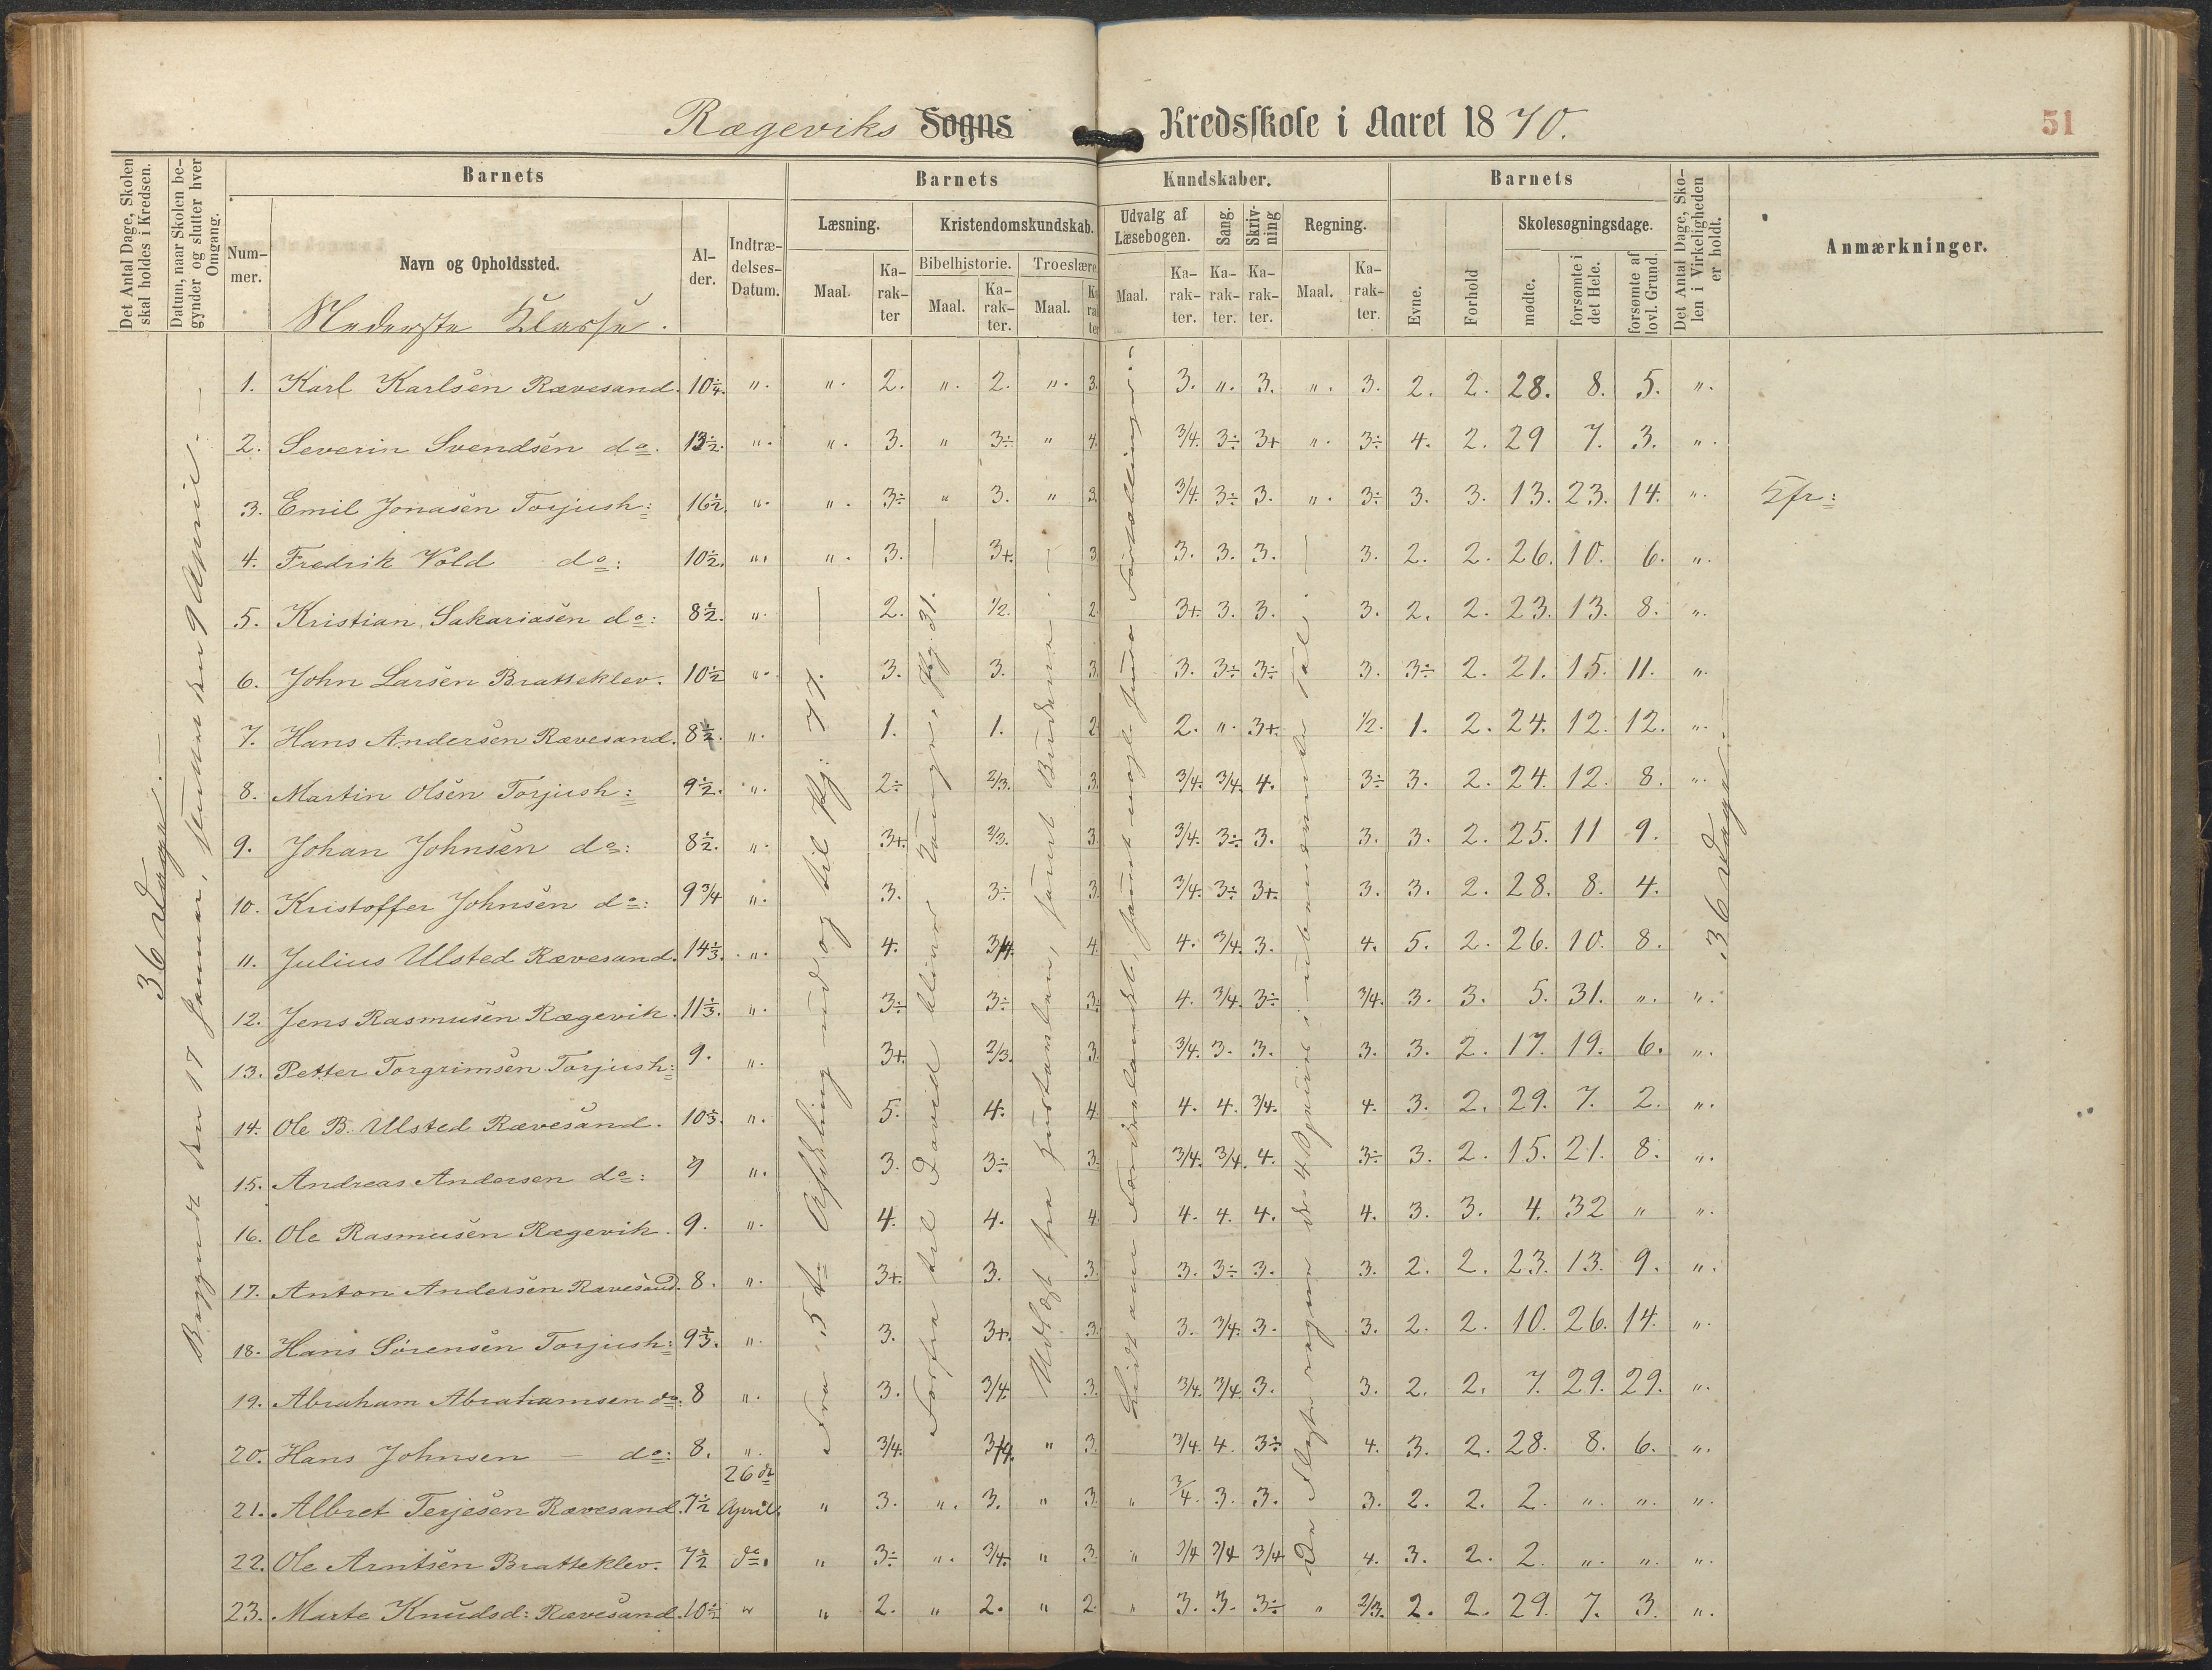 Rægeviks Sogns Kredsskole i Aaret 1870.
51
Det Antal Dage, Skolen skal holdes i Kredsen.
Datum, naar Skolen begynder og slutter hver Omgang.
Barnets
Barnets Kundskaber.
Barnets
Det Antal Dage, Skolen i Virkeligheden er holdt.
Anmærkninger.
Nummer.
Navn og Opholdssted.
Alder.
Indtrædelses-Datum.
Læsning.
Kristendomskundskab.
Udvalg af Læsebogen.
Sang.
Skrivning
Regning.
Evne.
Forhold
Skolesøgningsdage.
Bibelhistorie. Troeslære.
Maal. Karakter Maal. Karakter. Maal. Karakter Maal. Karakter. Karakter. Karakter. Maal. Karakter.
mødte. forsømte i det Hele. forsømte af lovl. Grund.
Nederste Klasse.
36 Dage.
Begyndt den 17 Januar, sluttet den 9 April.
Fra 5te Afdeling ud og til Pg: 77.
Forfra til David bliver Konge, Pg. 31.
Udvalgt fra Pugtanstalten, samt Budene
De flyste regne de 4 Species i ubenævnte Tal.
36 Dage
1. Karl Karlsen Rævesand. 10¼. ". ". 2. ". 2. ". 3. 3. ". 3. ". 3. 2. 2. 28. 8. 5. ".
2. Severin Svendsen do. 13½. ". ". 3. " 3÷ " 4. 3/4. 3÷ 3+ ". 3÷ 4. 2. 29 7. 3. ".
3. Emil Jonasen Torjush: 16½. ". ". 3÷ " 3. " 3. 3/4. 3÷ 3. ". 3÷ 3. 3. 13. 23. 14. ".
4. Fredrik Vold do: 10½. ". ". 3. 3+. 3. 3. 3. 3. 3. 2. 2. 26. 10. 6. ".
5. Kristian Sakariasen do: 8½. ". 2. 1/2. 2. 3+. 3. 3. 3. 2. 2. 23. 13. 8. ".
6. John Larsen Bratteklev. 10½ ". 3. 3. 3. 3. 3÷ 3÷ 3. 3÷ 2. 21. 15. 11. ".
7. Hans Andersen Rævesand. 8½. ". 1. 1. 2. 2. ". 3+. 1/2. 1. 2. 24. 12. 12. ".
8. Martin Olsen Torjush: 9½. ". 2÷ 2/3. 3. 3/4. 3/4. 4. 3÷ 3. 2. 24. 12. 8. ".
9. Johan Johnsen do: 8½. ". 3+. 2/3. 3. 3/4. 3÷ 3. 3. 3. 2. 25. 11 9.
10. Kristoffer Johnsen do: 9¾ ". 3. 3÷ 3. 3/4. 3÷ 3+. 3. 3. 2. 28. 8. 4.
11. Julius Ulsted Rævesand. 14⅓. ". 4. 3/4. 4. 4. 3/4. 3. 4. 5. 2. 26. 10. 8.
12. Jens Rasmusen Rægevik. 11⅓. ". 3÷ 3÷ 3÷ 4. 3/4. 3÷ 3/4. 3. 3. 5. 31. ". ".
13. Petter Torgrimsen Torjush: 9. ". 3+. 2/3. 3. 3/4. 3. 3. 3. 3. 2. 17. 19. 6. ".
14. Ole B. Ulsted Rævesand. 10⅓. ". 5. 4. 4. 4. 4. 3/4. 4. 3. 2. 29. 7. 2. ".
15. Andreas Andersen do: 9 ". 3. 3÷ 3. 3/4. 3/4. 4. 3÷ 3. 2. 15. 21. 8. ".
16. Ole Rasmusen Rægevik. 9. ". 4. 4. 4. 4. 4. 4. 4. 3. 3. 4. 32 " ".
17. Anton Andersen Rævesand. 8. ". 3+. 3. 3. 3. 3÷ 3. 3. 2. 2. 23. 13. 9. ".
18. Hans Sörensen Torjush: 9⅓. ". 3. 3+. 3. 3. 3/4. 3. 3. 2. 2. 10. 26. 14. ".
19. Abraham Abrahamsen do. 8 ". 3. 3/4. 3. 3/4. 3/4. 3. 3. 2. 2. 7. 29. 29. ".
20. Hans Johnsen — do: 8. ". 3/4. 3/4. " 3. 3/4. 4. 3÷ 4. 3. 2. 28. 8. 6. ".
21. Albret Terjesen Rævesand. 7½ 26de April. " 3. ". 3. " 3. " 3/4. 3. 3. 3. 2. 2. 2. ". ". ".
22. Ole Arntsen Bratteklev. 7½ do. " 3÷ ". 3/4. " 3. " 3/4 3/4 3/4 4. 3. 2. 2. ". ". ".
23. Marte Knudsd: Rævesand. 10½ " " 2. " 2. " 2. " 3. 3. 3÷ " 2/3. 2. 2. 29. 7. 3. ".